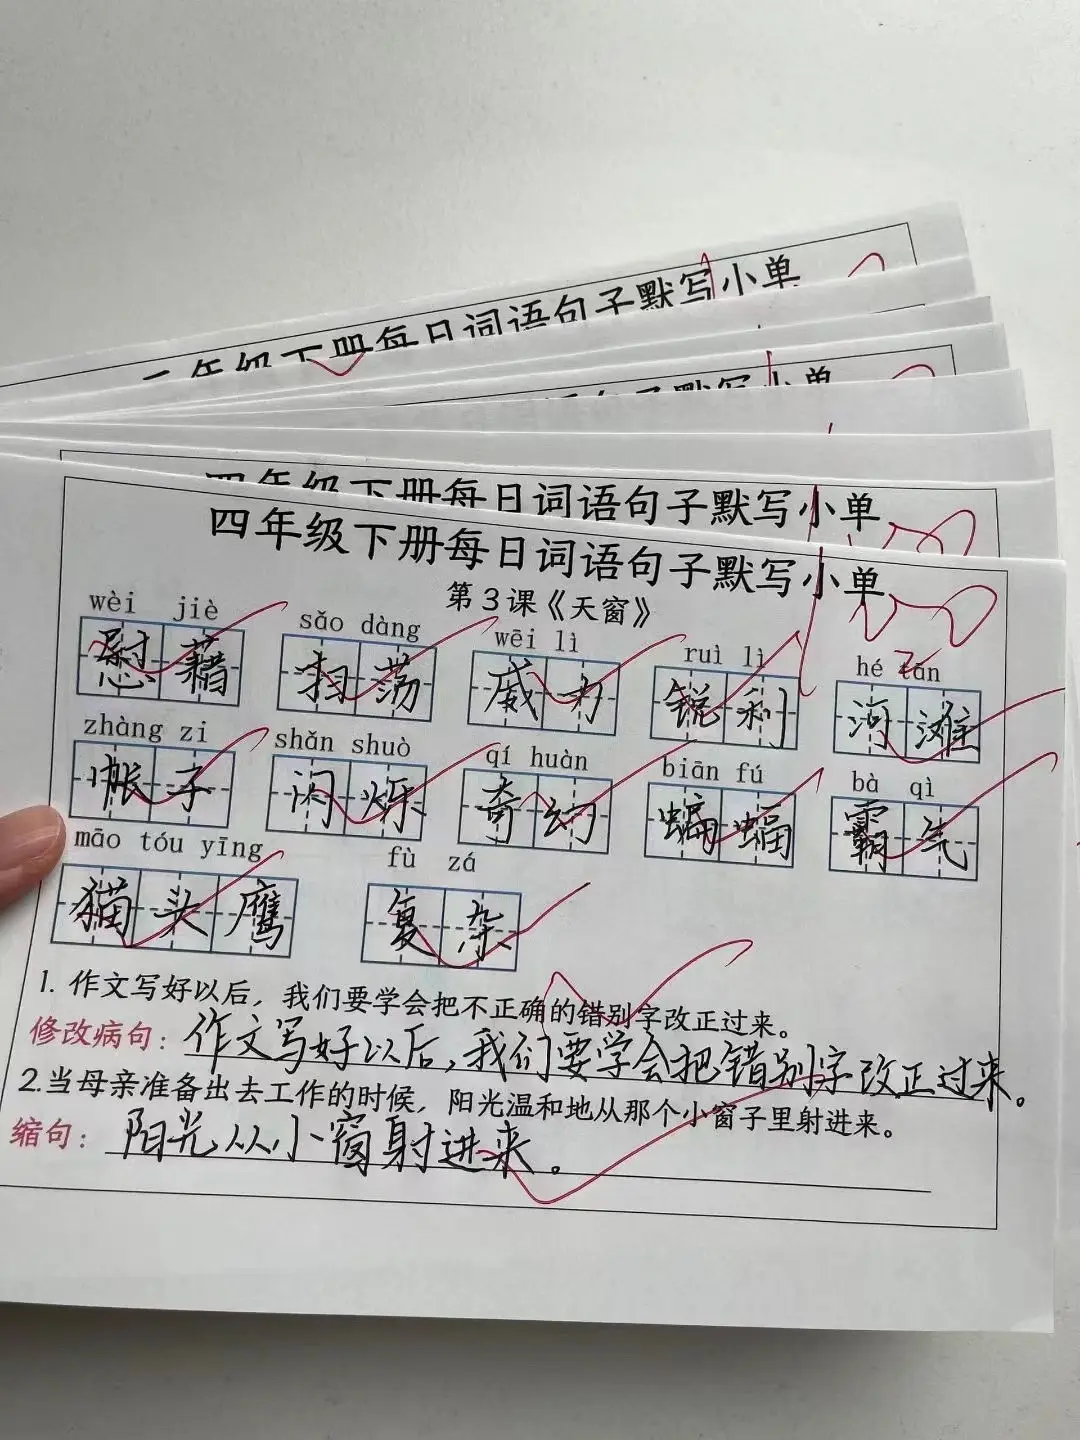 二年级下册每日词语句子默写小单
词语句子默写小单
四年级下册每日词语句子默写小单
100
四年级下册每日词语句子默写小单
100
第3课《天窗》
wèi jiè sǎo dàng wēi lì ruì lì hé tān
慰藉 扫荡 威力 锐利 河滩
zhàng zi shǎn shuò qí huàn biān fú bà qì
帐子 闪烁 奇幻 蝙蝠 霸气
māo tóu yīng fù zá
猫头鹰 复杂
1. 作文写好以后，我们要学会把不正确的错别字改正过来。
修改病句：作文写好以后，我们要学会把错别字改正过来。
2.当母亲准备出去工作的时候，阳光温和地从那个小窗子里射进来。
缩句：阳光从小窗射进来。